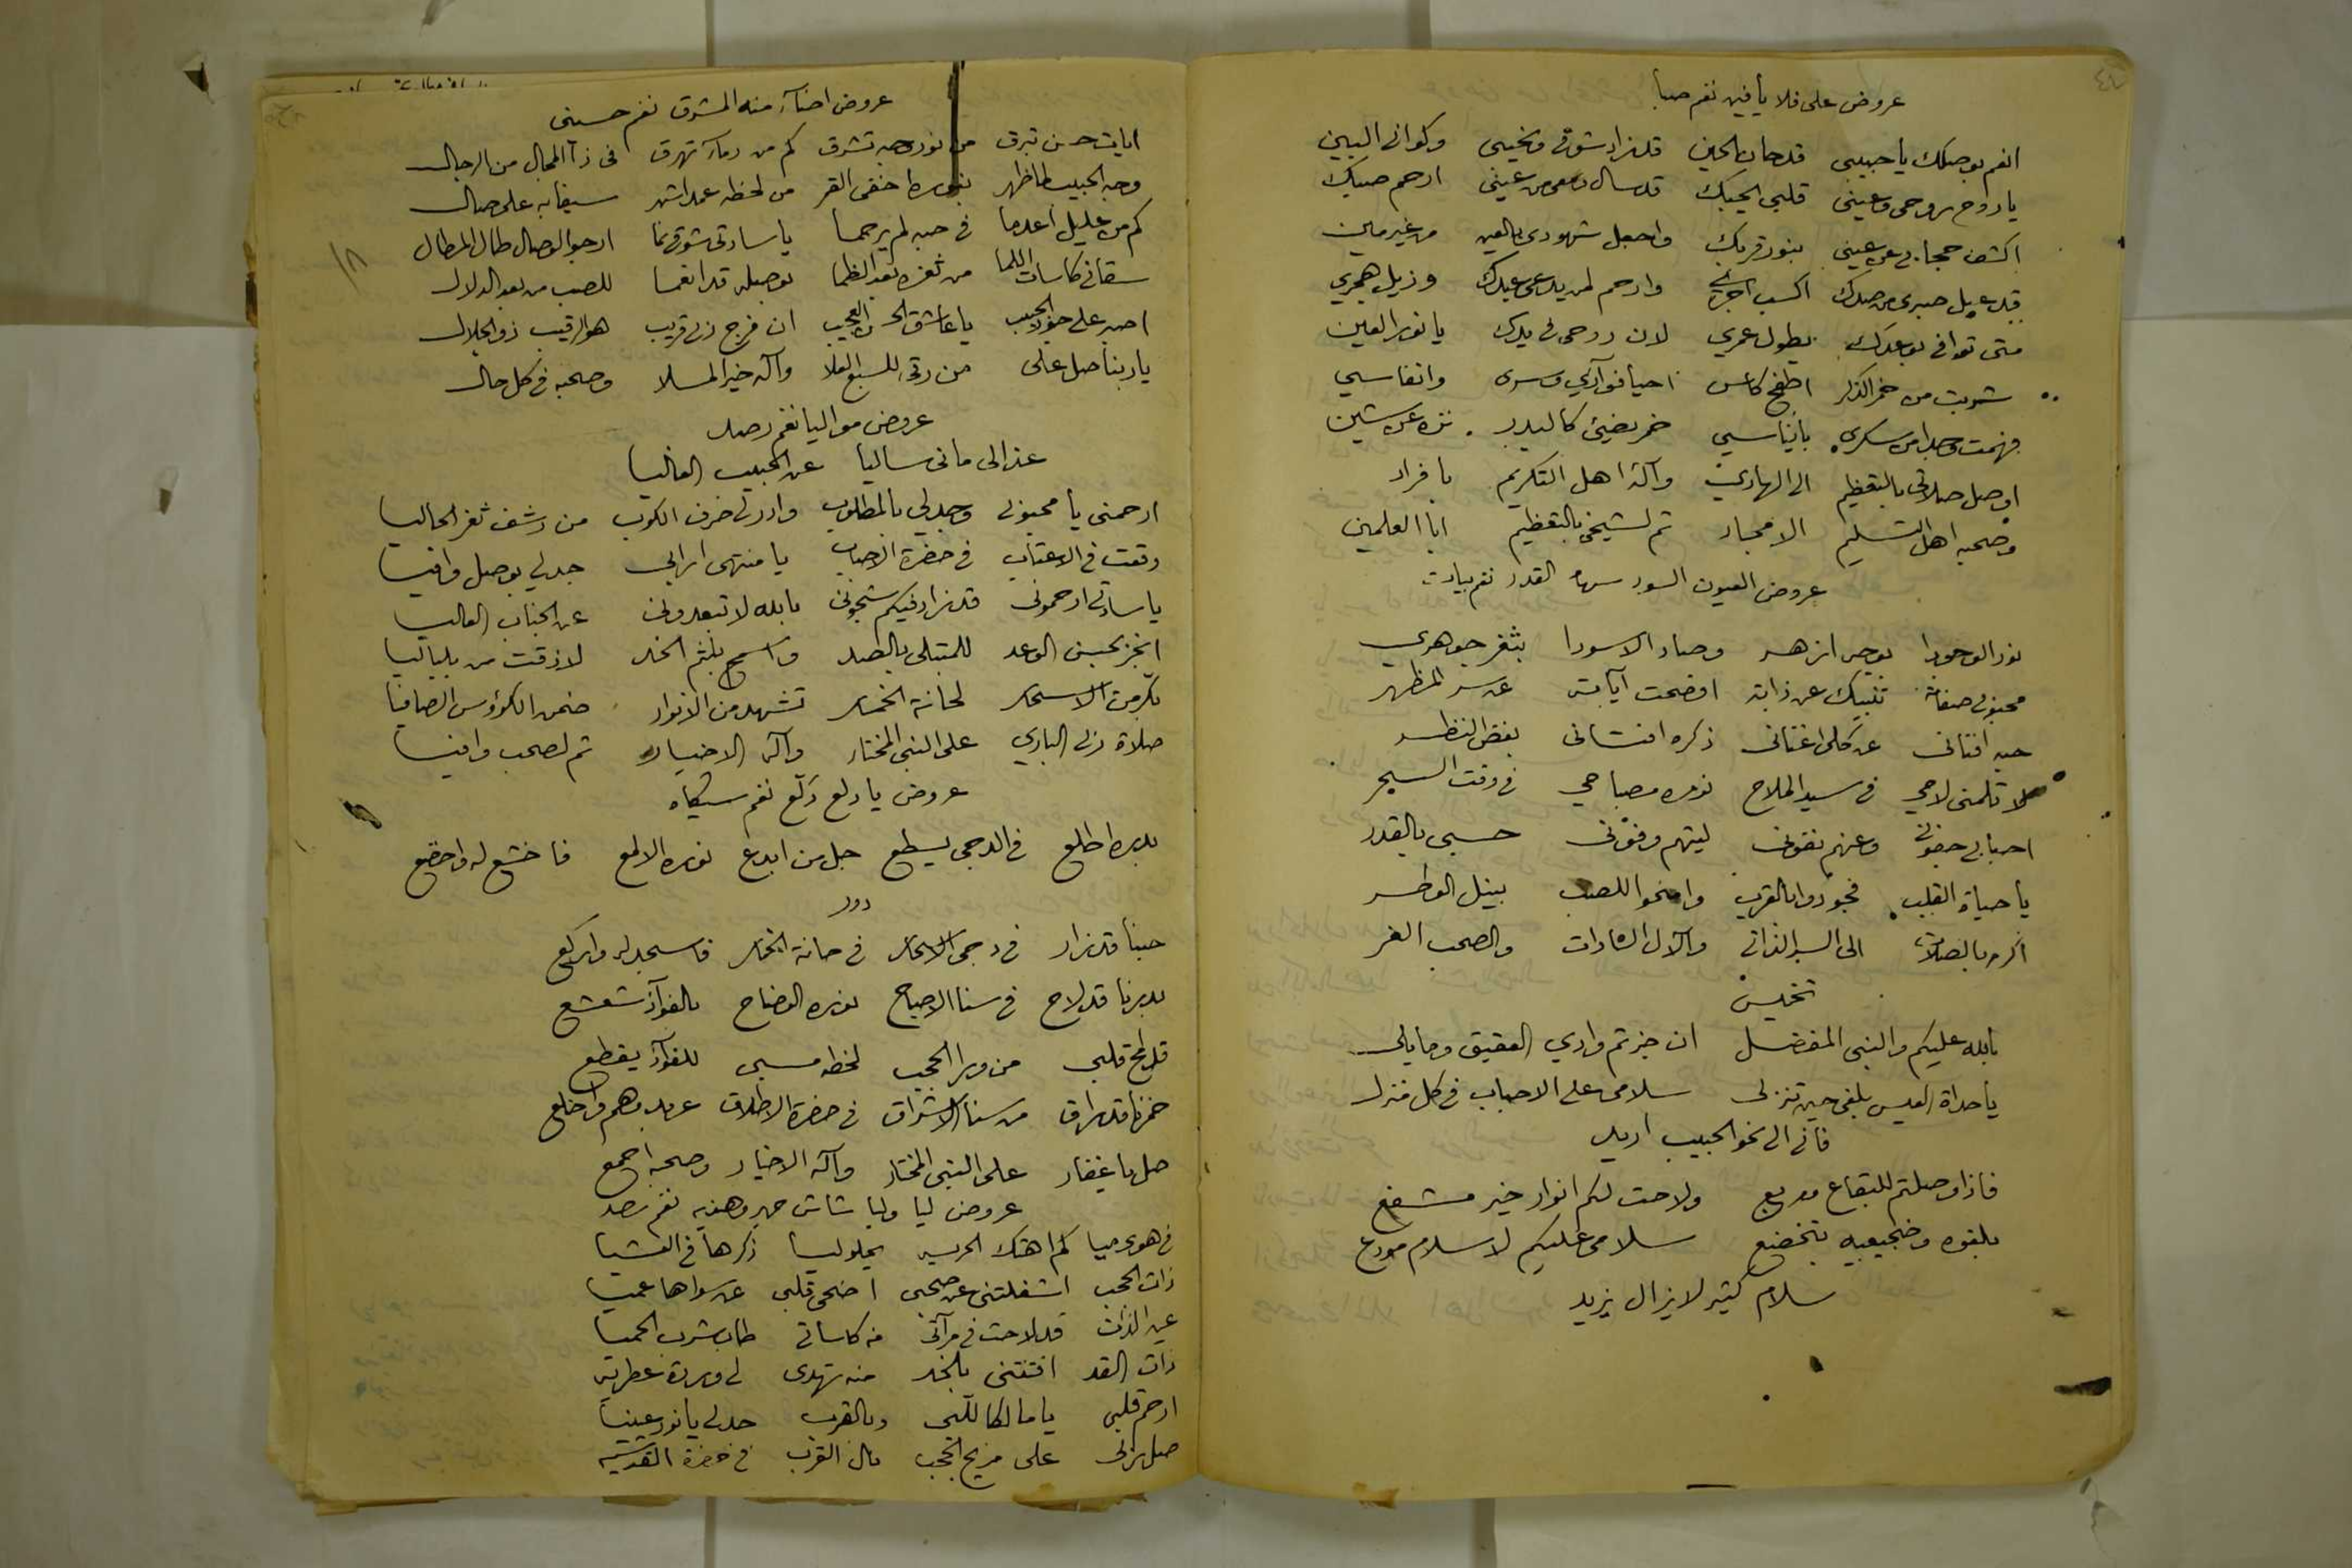 عروض على فلا يا فين نغم صبا
انعم بوصلك يا حبيبي قد حان الحين قد زاد شوقي ونحيبي وكواني البين
يا روح روحي وعيني قلبي يحبك قد سال دمعي من عيني ارحم صبك
اكشف حجابي عن عيني بنور قربك واجعل شهودي بالعين من غير مين
قد عيل صبري من صدك اكسب اجري وارحم لمن يدعى عبدك وزيل هجري
متى توافي بوعدك يطول عمري لان روحي في يدك يا نور العين
شربت من خمر الذكر اطفح كاسي احيا فؤادي وسرى وانفاسي
فهمت وجدا من سكري خمر يضيئ كالبدر
اوصل صلاتي بالتعظيم الى الهادي وآله اهل التكريم
وصحبه اهل التسليم الامجاد ثم لشيخي بالتعظيم
عروض العيون السود سهام القدر نغم بيات
نور الوجود بوجه ازهر وصاد الاسودا بثغر جوهري
محبوبي صفاته تنبيك عن ذاته اضحت آياته عن سر المظهر
حبه افناني عن كلي اغناني ذكره انشاني بغض النظر
لا تلمني لاحي في سيد الملاح نوره مصباحي في وقت السحر
احبابي جفوني وعنهم نفوني ليتهم وفوني حسبي بالقدر
يا حياة القلب فجودوا بالقرب وامنحوا للصب بنيل الوطر
اكرم بالصلات الى السر الذاتي والآل السادات والصحب الغر
تخميس
بالله عليكم والنبي المفضل ان جزتم وادي العقيق
يا حداة العيس بلغي حين تنزلي سلامي على الاحباب في كل منزل
فاني الى نحو الحبيب اريد
فاذا وصلتم للبقاع ولاحت لكم انوار خير مشفع
بلغوه وضجيعيه بتخضع سلامي عليكم لا سلام مودع
سلام كثير لا يزال يزيد
عروض اضاء منه المشرق نغم حسيني
ايات حسن تبرق من نور وجه تشرق كم من دماء تهرق في ذا المجال من الرجال
وجه الحبيب لما ظهر بنوره اختفى القمر من لحظه عمدا شهر سيفا به على وصال
كم من عليل اعدما في حبه لم يرحما يا سادتي شوقي نما ارجو الوصال طال المطال
سقاني كاسات اللما من ثغره بعد الظما بوصله قد انعما للصب من بعد الدلال
اصبر على جور الحبيب يا عاشق الحسن العجيب ان فرج ربي قريب هو الرقيب ذو الجلال
يا ربنا صل على من رقى للسبع العلا وآله خير الملا وصحبه في كل حال
عروض مواليا نغم رصد
عذالي ماني ساليا عن الحبيب الغاليا
ارحمني يا محبوبي وجد لي بالمطلوب وادر لي خمر الكوب من رشف ثغر الحاليا
وقفت في الاعتاب في حضرة الاحباب يا منتهى ارابي جد لي بوصل وافيا
يا سادتي ارحموني قد زاد فيكم شجوني بالله لا تبعدوني عن الجناب العاليا
انجز بحسن الوعد للمبتلى بالصد واسمح بلثم الخد لا ذقت من بلباليا
بكر من الاسحار لحانة الخمار تشهد من الانوار ضمن الكؤوس الصافيا
صلاة ربي الباري على النبي المختار وآله الاخيار ثم لصحب وافيا
عروض يا دلع دلع نغم سيكاه
بدره اطلع في الدجى يسطع جل من ابدع نوره الالمع فاخشع له واخضع
دور
حبنا قد زار في دجى الاسحار في حانة الخمار فاسجد له واركع
بدرنا قد لاح في سنا الاصباح نوره الوضاح بالفؤاد شعشع
قد لمح قلبي من ورا الحجب لحظه مسبي للفؤاد يقطع
خمرنا قد راق من سنا الاشراق في حضرة الاطلاق عربد بهم واخلع
صل يا غفار على النبي المختار وآله الاخيار وصحبه اجمع
عروض ليا وليا نغم رصد
في هوى ميا كم اهتك الحرسيه يحلو ليا ذكرها في العشيا
ذات الحجب اشغلتني عن صحبي اضحى قلبي عن سواها عميا
عين الذات قد لاحت في مرآتي من كاساتي طاب شرب الحميا
ذات القد افتنتني بالخد منه تهدي لي وردة عطريه
ارحم قلبي يا مالكا للبي وبالقرب جد لي يا نور عينيا
صل ربي على مزيح الحجب نال القرب في حضرة القدسيه